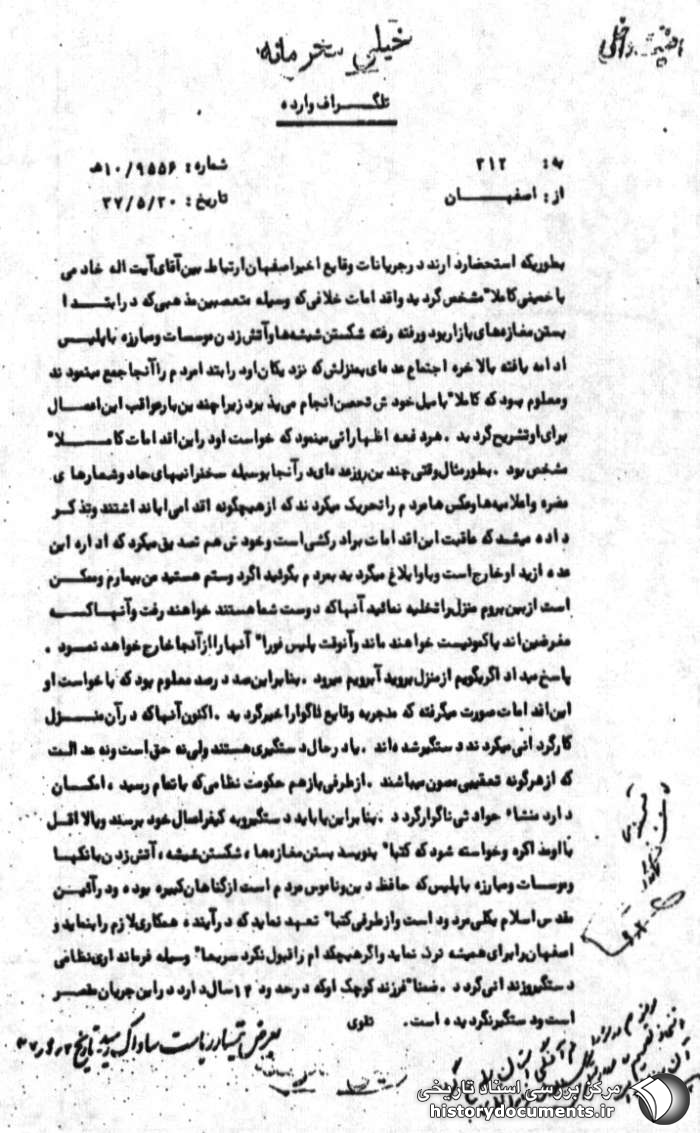 خیلی محرمانه
تلگراف وارده
به : ۳۱۲
شماره : ۱۰/۹۵۵۶ هـ
از : اصفهان
تاریخ : ۳۷/۵/۳۰
بطوریکه استحضار دارند در جریانات وقایع اخیر اصفهان ارتباط بین آقای آیت اله خادمی
با خمینی کاملا" مشخص گردید و اقدامات خلافی که وسیله متعصبین مذهبی که در ابتدا
بستن مغازه های بازار بود و رفته رفته شکستن شیشه ها و آتش زدن موسسات و مبارزه با پلیس
ادامه یافته بالاخره اجتماع عده ای بمنزلش که نزدیکان او در ابتدا مردم را آنجا جمع مینمودند
و معلوم بود که کاملا" با میل خودش تحصن انجام می پذیرد زیرا چندین بار عواقب این اعمال
برای او تشریح گردید . هر دفعه اظهاراتی مینمود که خواست او در این اقدامات کاملا"
مشخص بود . بطور مثال وقتی چندین روز عده ای در آنجا بوسیله سخنرانیهای حاد و شعارهای
مضره و اعلامیه ها و عکس ها مردم را تحریک میکردند که از هیچگونه اقدامی ابا نداشتند و تذکر
داده میشد که عاقبت این اقدامات برادرکشی است و خودش هم تصدیق میکرد که اداره این
عده از ید او خارج است و باو ابلاغ میگردید بمردم بگوئید اگر دوستم هستید من بیمارم و ممکن
است از بین بروم منزل را تخلیه نمائید آنها که دوست شما هستند خواهند رفت و آنها که
مغرضین اند یا کمونیست خواهند ماند و آنوقت پلیس فورا" آنها را از آنجا خارج خواهد نمود .
پاسخ میداد اگر بگویم از منزل بروید آبرویم میرود . بنابراین صد درصد معلوم بود که با خواست او
این اقدامات صورت میگرفته که منجر به وقایع ناگوار اخیر گردید . اکنون آنها که در آن منزل
کارگردانی میکردند دستگیر شده اند . یا در حال دستگیری هستند ولی نه حق است و نه عدالت
که از هرگونه تعقیبی مصون میباشند . از طرفی باز هم حکومت نظامی که باتمام رسید ، امکان
دارد منشاء حوادثی ناگوار گردد . بنابراین یا باید دستگیر و به کیفر اعمال خود برسند و یا لااقل
با او مذاکره و خواسته شود که کتبا" بنویسد بستن مغازه ها ، شکستن شیشه ، آتش زدن بانکها
و موسسات و مبارزه با پلیس که حافظ دین و ناموس مردم است از گناهان کبیره بوده و در آئین
مقدس اسلام بکلی مردود است و از طرفی کتبا" تعهد نماید که در آینده همکاری لازم را بنماید و
اصفهان را برای همیشه ترک نماید و اگر هیچکدام را قبول نکرد سریعا" وسیله فرمانداری نظامی
دستگیر و زندانی گردد . ضمنا" فرزند کوچک او که در حدود ۱۴ سال دارد در این جریان مقصر
است و دستگیر نگردیده است . تقوی
بعرض تیمسار ریاست ساواک رسید تاریخ
مرکز بررسی اسناد تاریخی
historydocuments.ir